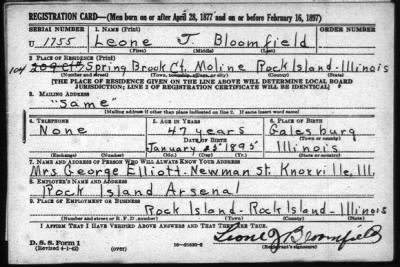 REGISTRATION CARD—(Men born on or after April 28, 1877 and on or before February 16, 1897)
SERIAL NUMBER 1. NAME (Print) ORDER NUMBER
U 1755 Leone J Bloomfield
(First) (Middle) (Last)
2. PLACE OF RESIDENCE (Print)
104 Spring Brook Ct. Moline Rock Island - Illinois
(Number and street) (Town, township, village, or city) (County) (State)
[THE PLACE OF RESIDENCE GIVEN ON THE LINE ABOVE WILL DETERMINE LOCAL BOARD
JURISDICTION; LINE 2 OF REGISTRATION CERTIFICATE WILL BE IDENTICAL]
3. MAILING ADDRESS
"Same"
[Mailing address if other than place indicated on line 2. If same insert word same]
4. TELEPHONE 5. AGE IN YEARS 6. PLACE OF BIRTH
None 47 years Galesburg
DATE OF BIRTH (Town or county)
January 25 1895 Illinois
(Exchange) (Number) (Mo.) (Day) (Yr.) (State or country)
7. NAME AND ADDRESS OF PERSON WHO WILL ALWAYS KNOW YOUR ADDRESS
Mrs George Elliott - Newman St. Knoxville, Ill.
8. EMPLOYER'S NAME AND ADDRESS
Rock Island Arsenal
9. PLACE OF EMPLOYMENT OR BUSINESS
Rock Island - Rock Island - Illinois
(Number and street or R. F. D. number) (Town) (County) (State)
I AFFIRM THAT I HAVE VERIFIED ABOVE ANSWERS AND THAT THEY ARE TRUE.
D. S. S. Form 1
(Revised 4-1-42) (over) Leone J Bloomfield
(Registrant's signature)